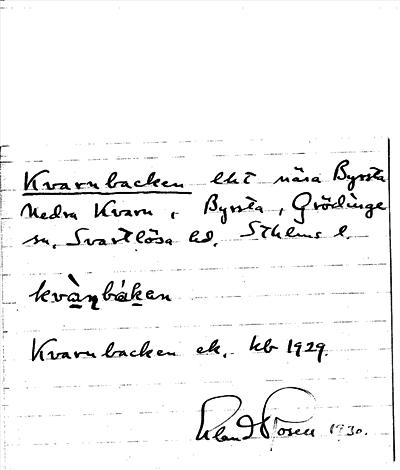 Kvarnbacken lht nära Byrsta
Nedra Kvarn, Byrsta, Grödinge
sn. Svartlösa hd. Sthlms l.
kvàɳbákan
Kvarnbacken ek. kb 1929.
1930.